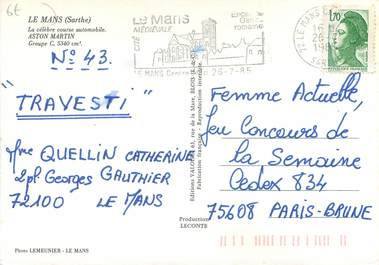 6E
LE MANS (Sarthe)
La célèbre course automobile.
ASTON MARTIN
Groupe C. 5340 cm³.
N° 43.
"TRAVESTI"
Mme QUELLIN CATHERINE
2 pl Georges GAUTHIER
72100 LE MANS
Photo LEMEUNIER - LE MANS
Editions VALOIRE 63, rue de la Mare, BLOIS
Fabrication française. Reproduction interdite.
Production
LECONTE
Le Mans
MÉDIÉVALE
CITÉ
romaine
LE MANS 26-7-85
72 LE MANS
1,70
Femme Actuelle,
Jeu Concours de
la Semaine
Cedex 834
75608 PARIS-BRUNE